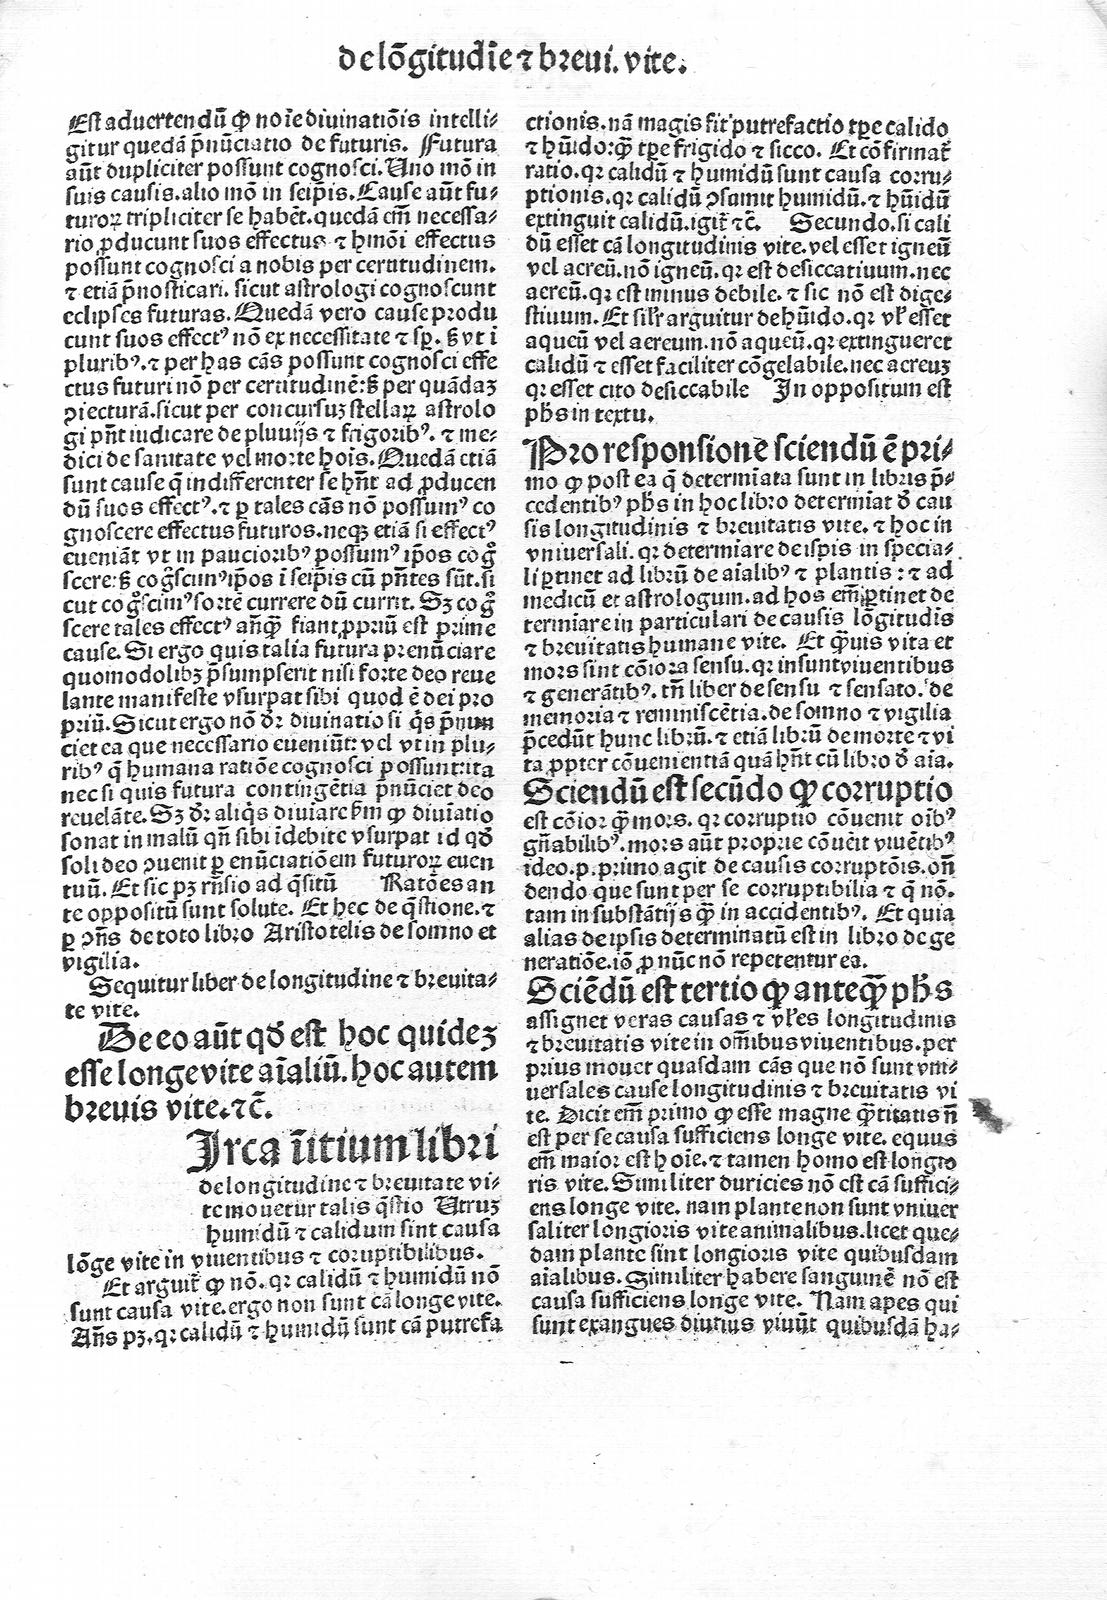 de lōgitudīe ⁊ breui. vite.
Est aduertendū ꝙ noīe diuinatiōis intelli⸗
gitur quedā p̄nūciatio de futuris. Futura
aūt dupliciter possunt cognosci. Uno mō in
suis causis. alio mō in seip̄is. Cause aūt fu⸗
turoꝝ tripliciter se habēt. quedā em̄ necessa⸗
rio ꝓducunt suos effectus ⁊ hmōi effectus
possunt cognosci a nobis per certitudinem.
⁊ etiā p̄nosticari. sicut astrologi cognoscunt
eclipses futuras. Quedā vero cause produ
cunt suos effectꝰ nō ex necessitate ⁊ sꝑ. sꝫ vt ī
pluribꝰ. ⁊ per has cās possunt cognosci effe
ctus futuri nō per certitudinē: sꝫ per quādaꝫ
ꝯiecturā. sicut per concursuꝫ stellaꝝ astrolo
gi pn̄t iudicare de pluuijs ⁊ frigoribꝰ. ⁊ me⸗
dici de sanitate vel morte hoīs. Quedā etiā
sunt cause q̄ indifferenter se hn̄t ad ꝓducen
dū suos effectꝰ. ⁊ ꝑ tales cās nō possumꝰ co
gnoscere effectus futuros. neqꝫ etiā si effectꝰ
eueniāt vt in paucioribꝰ possumꝰ ip̄os coḡ
scere: sꝫ coḡscimꝰ ip̄os ī seip̄is cū pn̄tes sūt. si
cut coḡscimꝰ sortē currere dū currit. Sꝫ coḡ
scere tales effectꝰ anq̄ꝫ fiant, ꝓpriū est prime
cause. Si ergo quis talia futura prenūciare
quomodolibꝫ p̄sumpserit nisi forte deo reue
lante manifeste vsurpat sibi quod ē dei pro
priū. Sicut ergo nō dr̄ diuinatio si q̄s p̄nun
ciet ea que necessario eueniūt: vel vt in plu⸗
ribꝰ q̄ humana ratiōe cognosci possunt: ita
nec si quis futura contingētia p̄nūciet deo
reuelāte. Sꝫ dr̄ aliq̄s diuīare hm̄ ꝙ diuīatio
sonat in malū qn̄ sibi īdebite vsurpat id qđ
soli deo ꝯuenit ꝑ enūciatiōem futuroꝝ euen
tuū. Et sic pꝫ rn̄sio ad q̄sitū Ratōes an
te oppositū sunt solute. Et hec de q̄stione. ⁊
ꝑ ꝯn̄s de toto libro Aristotelis de somno et
vigilia.
Sequitur liber de longitudine ⁊ breuita⸗
te vite.
De eo aūt qđ est hoc quideꝫ
esse longe vite aīaliū. hoc autem
breuis vite. ⁊c̄.
Irca īnitium libri
de longitudine ⁊ breuitate vi⸗
te mouetur talis q̄stio Utruꝫ
humidū ⁊ calidum sint causa
lōge vite in viuentibus ⁊ coruptibilibus.
Et arguit̄ ꝙ nō. qꝛ calidū ⁊ humidū nō
sunt causa vite. ergo non sunt cā longe vite.
An̄s pꝫ. qꝛ calidū ⁊ humidū sunt cā putrefa
ctionis. nā magis fit putrefactio tꝑe calido
⁊ hūido: q̄ꝫ tꝑe frigido ⁊ sicco. Et cōfirmat̄
ratio. qꝛ calidū ⁊ humidū sunt causa corru⸗
ptionis. qꝛ calidū ꝯsumit humidū. ⁊ hūidū
extinguit calidū. igit̄ ⁊c̄. Secundo. si cali
dū esset cā longitudinis vite. vel esset igneū
vel aereū. nō igneū. qꝛ est desiccatiuum. nec
aereū. qꝛ est minus debile. ⁊ sic nō est dige⸗
stiuum. Et silr̄ arguitur de hūido. qꝛ vl̄ esset
aqueū vel aereum. nō aqueū. qꝛ extingueret
calidū ⁊ esset faciliter cōgelabile. nec aereuꝫ
qꝛ esset cito desiccabile In oppositum est
ph̄s in textu.
Pro responsione sciendū ē pri⸗
mo ꝙ post ea q̄ determīata sunt in libris p̄⸗
cedentibꝰ ph̄s in hoc libro determīat đ cau
sis longitudinis ⁊ breuitatis vite. ⁊ hoc in
vniuersali. qꝛ determīare de ip̄sis in specia⸗
li ꝑtinet ad librū de aīalibꝰ ⁊ plantis: ⁊ ad
medicū et astrologum. ad hos em̄ ꝑtinet de
terminare in particulari de causis lōgitudīs
⁊ breuitatis humane vite. Et q̄ꝫuis vita et
mors sint cōiora sensu. qꝛ insunt viuentibus
⁊ generātibꝰ. tn̄ liber de sensu ⁊ sensato. de
memoria ⁊ reminiscētia. de somno ⁊ vigilia
p̄cedūt hunc librū. ⁊ etiā librū de morte ⁊ vi
ta ꝓpter cōuenientiā quā hn̄t cū libro đ aīa.
Sciendū est secūdo ꝙ corruptio
est cōior q̄ꝫ mors. qꝛ corruptio cōuenit oībꝰ
gn̄abilibꝰ. mors aūt proprie cōuēit viuētibꝰ
ideo. p. primo agit de causis corruptōis. on̄
dendo que sunt per se corruptibilia ⁊ q̄ nō.
tam in substātijs q̄ꝫ in accidentibꝰ. Et quia
alias de ipsis determinatū est in libro de ge
neratiōe. iō ꝓ nūc nō repetentur ea.
Sciēdū est tertio ꝙ anteq̄ꝫ ph̄s
assignet veras causas ⁊ vl̄es longitudinis
⁊ breuitatis vite in om̄ibus viuentibus. per
prius mouet quasdam cās que nō sunt vni⸗
uersales cause longitudinis ⁊ breuitatis vi
te. Dicit em̄ primo ꝙ esse magne q̄ꝫtitatis n̄
est per se causa sufficiens longe vite. equus
em̄ maior est hoīe. ⁊ tamen homo est longio
ris vite. Similiter duricies nō est cā suffici⸗
ens longe vite. nam plante non sunt vniuer
saliter longioris vite animalibus. licet que⸗
dam plante sint longioris vite quibusdam
aīalibus. Similiter habere sanguinē nō est
causa sufficiens longe vite. Nam apes qui
sunt exangues diutius viuūt quibusdā ha⸗